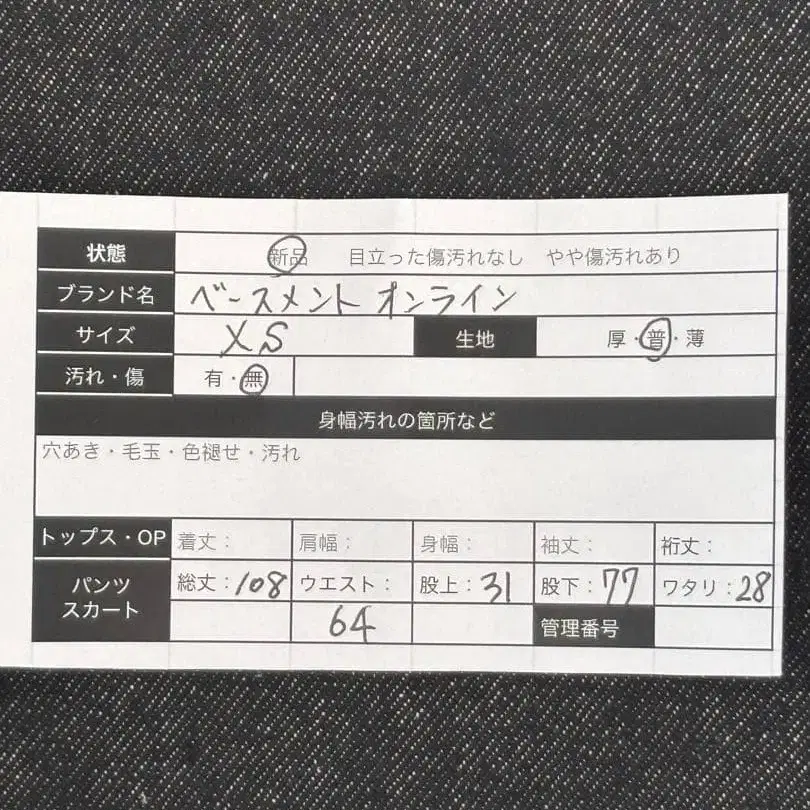 状態 新品 目立った傷汚れなし やや傷汚れあり
ブランド名 ベースメント オンライン
サイズ XS 生地 厚・普・薄
汚れ・傷 有・無
身幅汚れの箇所など
穴あき・毛玉・色褪せ・汚れ
トップス・OP 着丈: 肩幅: 身幅: 袖丈: 裄丈:
パンツ スカート 総丈:108 ウエスト: 股上:31 股下:77 ワタリ:28
64 管理番号